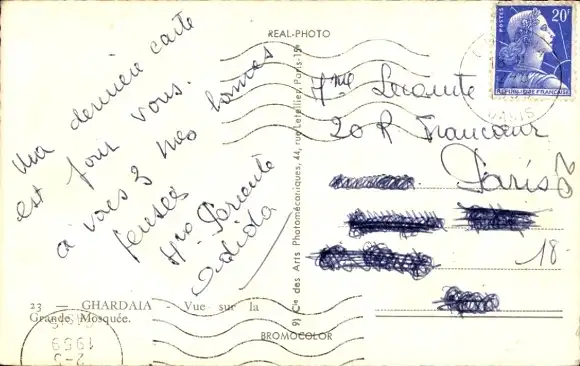 REAL-PHOTO
Ma dernière carte
est pour vous.
à vous 3 mes bonnes
pensées
23 — GHARDAIA - Vue sur la
Grande Mosquée.
9) Cie des Arts Photomécaniques, 44, rue Letellier, Paris-15e
BROMOCOLOR
POSTES
20F
REPUBLIQUE FRANÇAISE
Mme Lecomte
20 R Francoeur
Paris
18
PARIS
2-5
1959